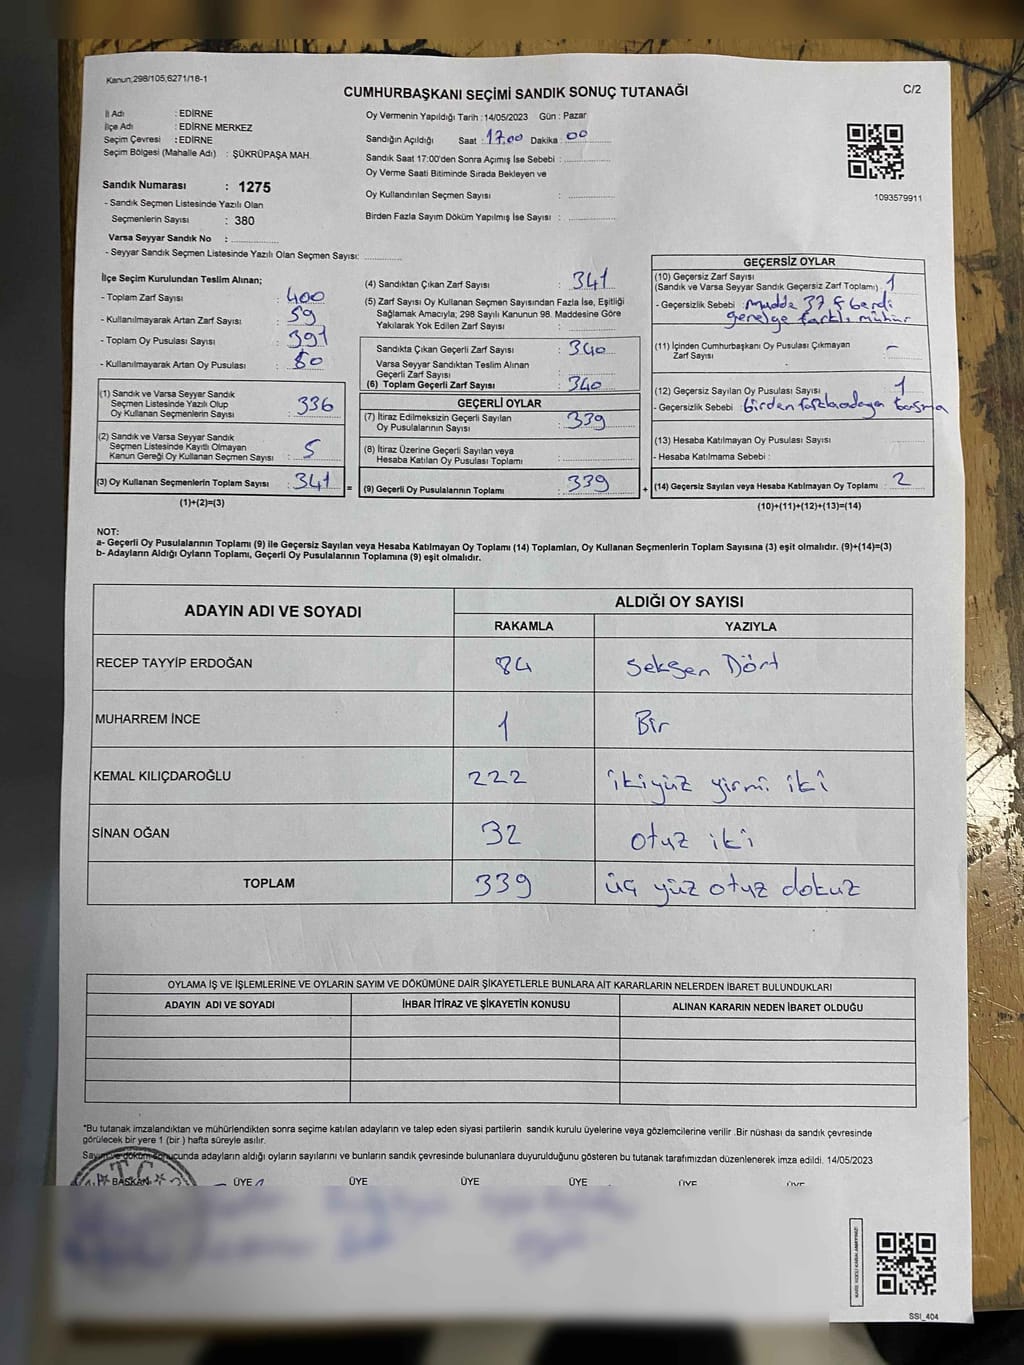 Kanun;298/105,6271/18-1
CUMHURBAŞKANI SEÇİMİ SANDIK SONUÇ TUTANAĞI
C/2
İl Adı : EDİRNE
İlçe Adı : EDİRNE MERKEZ
Seçim Çevresi : EDİRNE
Seçim Bölgesi (Mahalle Adı) : ŞÜKRÜPAŞA MAH.
Sandık Numarası : 1275
- Sandık Seçmen Listesinde Yazılı Olan
Seçmenlerin Sayısı : 380
Varsa Seyyar Sandık No :
- Seyyar Sandık Seçmen Listesinde Yazılı Olan Seçmen Sayısı:
Oy Vermenin Yapıldığı Tarih : 14/05/2023 Gün : Pazar
Sandığın Açıldığı Saat : 17.00 Dakika : 00
Sandık Saat 17:00'den Sonra Açımış İse Sebebi :
Oy Verme Saati Bitiminde Sırada Bekleyen ve
Oy Kullandırılan Seçmen Sayısı :
Birden Fazla Sayım Döküm Yapılmış İse Sayısı :
1093579911
İlçe Seçim Kurulundan Teslim Alınan;
- Toplam Zarf Sayısı : 400
- Kullanılmayarak Artan Zarf Sayısı : 59
- Toplam Oy Pusulası Sayısı : 391
- Kullanılmayarak Artan Oy Pusulası : 50
(1) Sandık ve Varsa Seyyar Sandık
Seçmen Listesinde Yazılı Olup
Oy Kullanan Seçmenlerin Sayısı : 336
(2) Sandık ve Varsa Seyyar Sandık
Seçmen Listesinde Kayıtlı Olmayan
Kanun Gereği Oy Kullanan Seçmen Sayısı : 5
(3) Oy Kullanan Seçmenlerin Toplam Sayısı : 341
(1)+(2)=(3)
(4) Sandıktan Çıkan Zarf Sayısı : 341
(5) Zarf Sayısı Oy Kullanan Seçmen Sayısından Fazla İse, Eşitliği
Sağlamak Amacıyla; 298 Sayılı Kanunun 98. Maddesine Göre
Yakılarak Yok Edilen Zarf Sayısı :
Sandıkta Çıkan Geçerli Zarf Sayısı : 340
Varsa Seyyar Sandıktan Teslim Alınan
Geçerli Zarf Sayısı :
(6) Toplam Geçerli Zarf Sayısı : 340
GEÇERLİ OYLAR
(7) İtiraz Edilmeksizin Geçerli Sayılan
Oy Pusulalarının Sayısı : 339
(8) İtiraz Üzerine Geçerli Sayılan veya
Hesaba Katılan Oy Pusulası Toplamı :
= (9) Geçerli Oy Pusulalarının Toplamı : 339
GEÇERSİZ OYLAR
(10) Geçersiz Zarf Sayısı
(Sandık ve Varsa Seyyar Sandık Geçersiz Zarf Toplamı) : 1
- Geçersizlik Sebebi : Madde 37 f bendi
genelge farklı mühür
(11) İçinden Cumhurbaşkanı Oy Pusulası Çıkmayan
Zarf Sayısı : -
(12) Geçersiz Sayılan Oy Pusulası Sayısı : 1
- Geçersizlik Sebebi : Birden fazla adaya basma
(13) Hesaba Katılmayan Oy Pusulası Sayısı
- Hesaba Katılmama Sebebi :
+ (14) Geçersiz Sayılan veya Hesaba Katılmayan Oy Toplamı : 2
(10)+(11)+(12)+(13)=(14)
NOT:
a- Geçerli Oy Pusulalarının Toplamı (9) ile Geçersiz Sayılan veya Hesaba Katılmayan Oy Toplamı (14) Toplamları, Oy Kullanan Seçmenlerin Toplam Sayısına (3) eşit olmalıdır. (9)+(14)=(3)
b- Adayların Aldığı Oyların Toplamı, Geçerli Oy Pusulalarının Toplamına (9) eşit olmalıdır.
ADAYIN ADI VE SOYADI
ALDIĞI OY SAYISI
RAKAMLA YAZIYLA
RECEP TAYYİP ERDOĞAN 84 Seksen Dört
MUHARREM İNCE 1 Bir
KEMAL KILIÇDAROĞLU 222 ikiyüz yirmi iki
SİNAN OĞAN 32 otuz iki
TOPLAM 339 üç yüz otuz dokuz
OYLAMA İŞ VE İŞLEMLERİNE VE OYLARIN SAYIM VE DÖKÜMÜNE DAİR ŞİKAYETLERLE BUNLARA AİT KARARLARIN NELERDEN İBARET BULUNDUKLARI
ADAYIN ADI VE SOYADI İHBAR İTİRAZ VE ŞİKAYETİN KONUSU ALINAN KARARIN NEDEN İBARET OLDUĞU
*Bu tutanak imzalandıktan ve mühürlendikten sonra seçime katılan adayların ve talep eden siyasi partilerin sandık kurulu üyelerine veya gözlemcilerine verilir .Bir nüshası da sandık çevresinde
görülecek bir yere 1 (bir ) hafta süreyle asılır.
Sayım ve döküm sonucunda adayların aldığı oyların sayılarını ve bunların sandık çevresinde bulunanlara duyurulduğunu gösteren bu tutanak tarafımızdan düzenlenerek imza edildi. 14/05/2023
T.C.
BAŞKAN ÜYE ÜYE ÜYE ÜYE ÜYE ÜYE
SSI_404